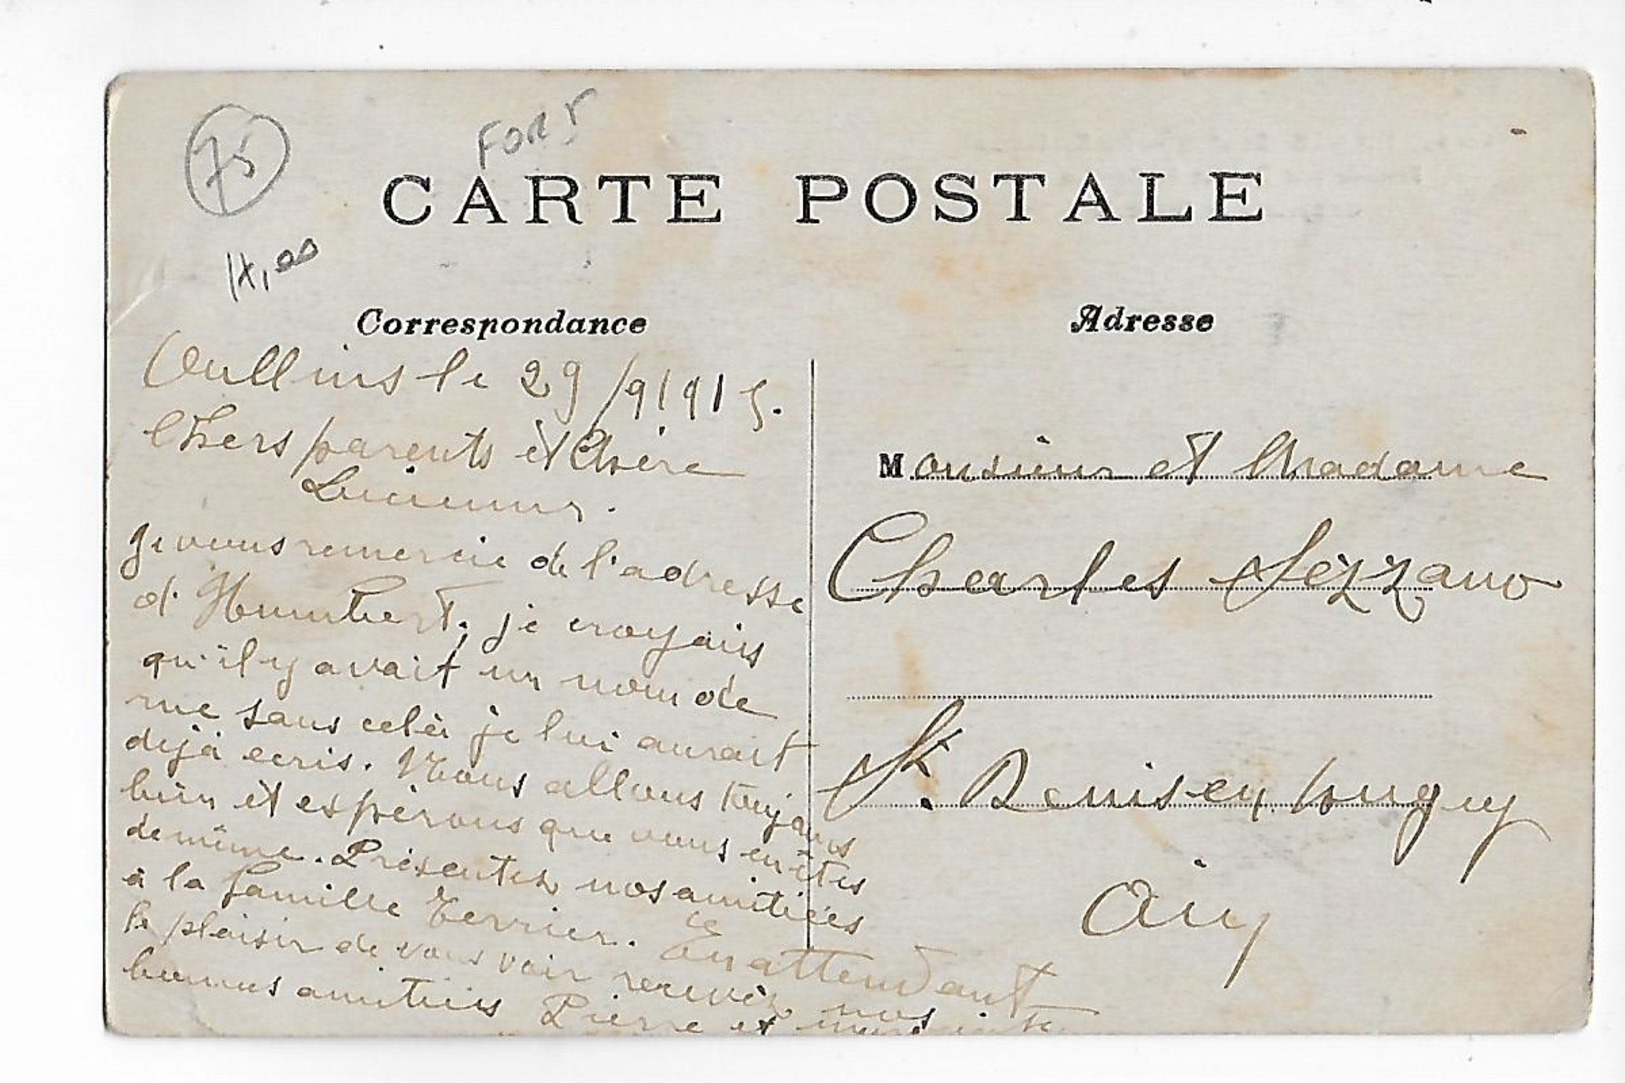 75
FORT
CARTE POSTALE
Correspondance
Adresse
Oullins le 29/9/915.
Chers parents et Chère
Lucienne.
Je vous remercie de l'adresse
d'Humbert, je croyais
qu'il y avait un nom de
rue sans celà je lui aurait
dejà ecris. Nous allons toujours
bien et espèrons que vous en êtes
de même. Présentez nos amitiées
à la famille Terrier. En attendant
le plaisir de vous voir recevèz nos
bonnes amitiés Pierre et
Monsieur et Madame
Charles Sezzano
St. Denis en bugey
Ain